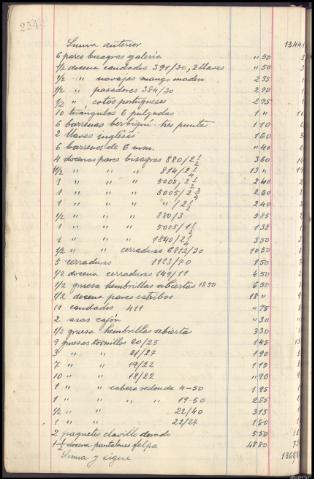 234
Suma anterior 13441
6 pares bisagras galeria " 50
1/2 docena candados 391/30, 2 llaves " 50
1/2 " " navajas mango madera 2 35
1/2 " " pasadores 384/30 2 90
1/2 " " cotos portugueses 2 75
10 triángulos 6 pulgadas 1 "
6 barrenas berbiquí tres puntas 1 10
2 llaves inglesas 1 60
6 barrenos de 6 m.m. " 40
4 docenas pares bisagras 880/2 1/2 3 60
1/2 " " " 814/2 1/2 13 "
1 " " " 5005/2 1/2 2 40
1 " " " 5005/2 3/4 2 60
1 " " " " /2 1/4 2 40
1/2 " " " 880/3 5 85
1 " " " 5005/1 1/2 1 35
1 " " " 1840/2 1/4 3 50
1/2 " " cerraduras 6812/30 10 50
5 cerraduras 1123/70 1 50
1/2 docena cerraduras 149/11 6 50
1/2 gruesa hembrillas abierta 18x30 6 50
1/2 docena pares estribos 18 "
10 candados 411 " 75
2 asas cajón " 30
1/2 gruesa hembrillas abierta 3 30
9 gruesas tornillos 20/25 1 45
3 " " 21/27 1 90
7 " " 19/22 1 15
10 " " 18/22 " 90
1 " " cabeza redonda 4-50 1 95
1 " " " 19-50 2 85
1/2 " " 22/40 3 15
1 " " 22/24 1 80
2 paquetes clavillo dorado 5 50
1 1/2 docena pantalones felpa 48 80
Suma y sigue